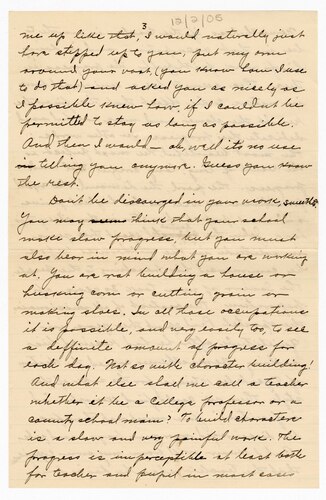 3
12/2/05
me up like that, I would naturally just
have stepped up to you, put my arm
around your vest, (you know how I use
to do that) and asked you as nicely as
I possible knew how, if I could not be
permitted to stay as long as possible.
And then I would — oh, well its no use
in telling you anymore. Guess you know
the rest.
Don't be discourged in your work,
You may think that your school
make slow progress, but you must
also bear in mind what you are working
at. You are not building a house or
husking corn or cutting grain or
making shoes. In all those occupations
it is possible, and very easily too, to see
a deffinite amount of progress for
each day. Not so with character building!
And what else shall we call a teacher
whether it be a College professor or a
country school mam? To build character
is a slow and very painful work. The
progress is imperceptible at least both
for teacher and pupil in most cases